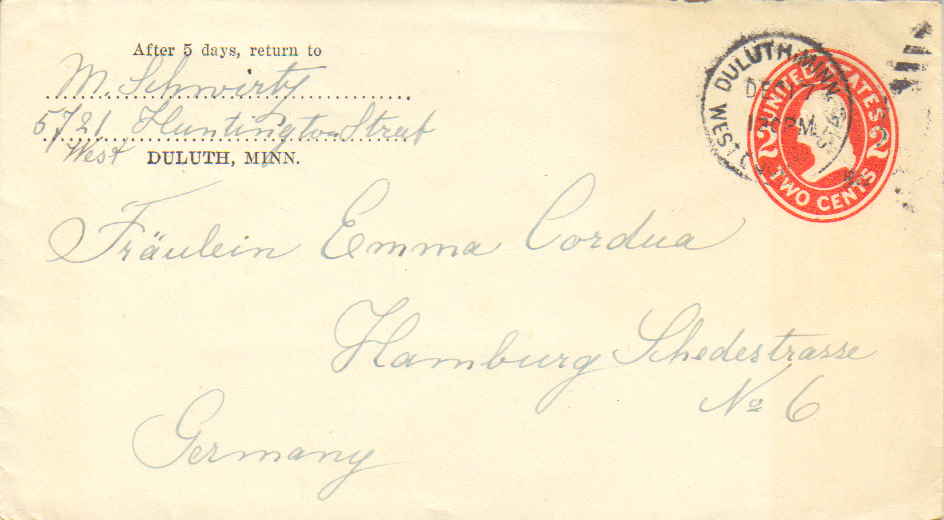 After 5 days, return to
M. Schwirtz
5721 Huntington Street
West DULUTH, MINN.
WEST DULUTH, MINN.
DEC
PM
UNITED STATES
2 2
TWO CENTS
Fräulein Emma Cordua
Hamburg Schedestrasse
No 6
Germany